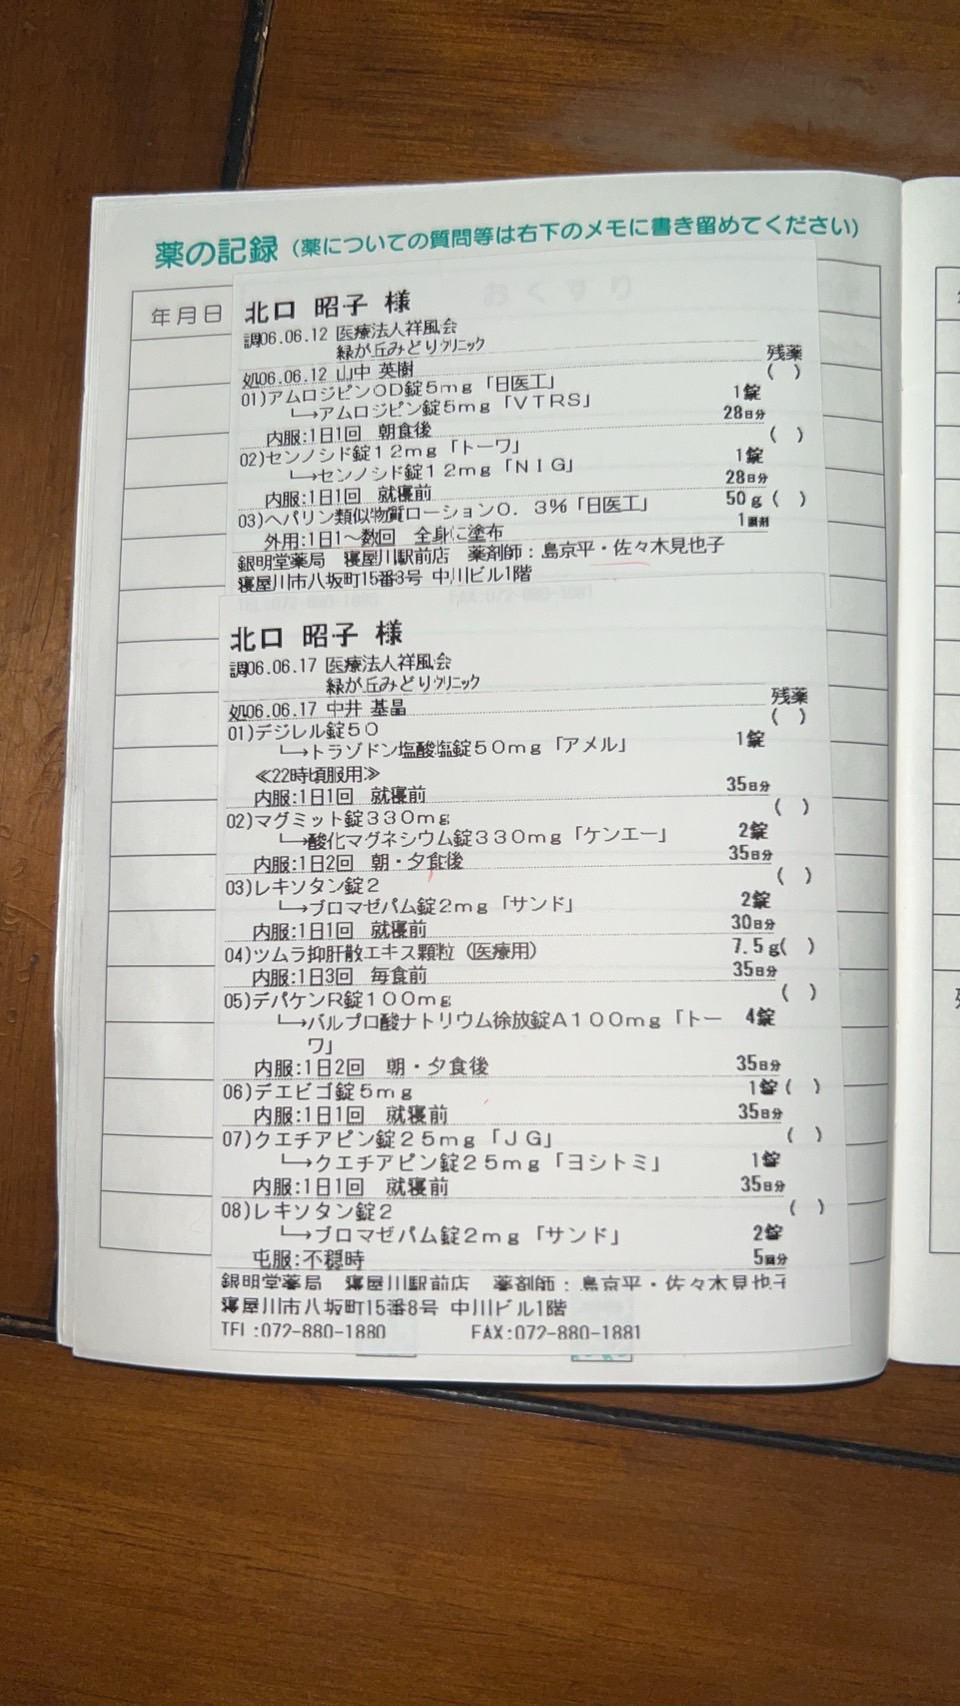 薬の記録 (薬についての質問等は右下のメモに書き留めてください)
年月日
北口 昭子 様
調06.06.12 医療法人祥風会
緑が丘みどりクリニック
残薬
処06.06.12 山中 英樹 ( )
01)アムロジピンOD錠5mg「日医工」
└→アムロジピン錠5mg「VTRS」 1錠
28日分
内服:1日1回 朝食後 ( )
02)センノシド錠12mg「トーワ」
└→センノシド錠12mg「NIG」 1錠
28日分
内服:1日1回 就寝前
03)ヘパリン類似物質ローション0.3%「日医工」 50g( )
外用:1日1～数回 全身に塗布 1調剤
銀明堂薬局 寝屋川駅前店 薬剤師:島京平・佐々木見也子
寝屋川市八坂町15番8号 中川ビル1階
北口 昭子 様
調06.06.17 医療法人祥風会
緑が丘みどりクリニック
残薬
処06.06.17 中井 基晶 ( )
01)デジレル錠50
└→トラゾドン塩酸塩錠50mg「アメル」 1錠
≪22時頃服用≫
内服:1日1回 就寝前 35日分
02)マグミット錠330mg ( )
└→酸化マグネシウム錠330mg「ケンエー」 2錠
内服:1日2回 朝・夕食後 35日分
03)レキソタン錠2 ( )
└→ブロマゼパム錠2mg「サンド」 2錠
内服:1日1回 就寝前 30日分
04)ツムラ抑肝散エキス顆粒(医療用) 7.5g( )
内服:1日3回 毎食前 35日分
05)デパケンR錠100mg ( )
└→バルプロ酸ナトリウム徐放錠A100mg「トー 4錠
ワ」
内服:1日2回 朝・夕食後 35日分
06)デエビゴ錠5mg 1錠( )
内服:1日1回 就寝前 35日分
07)クエチアピン錠25mg「JG」 ( )
└→クエチアピン錠25mg「ヨシトミ」 1錠
内服:1日1回 就寝前 35日分
08)レキソタン錠2 ( )
└→ブロマゼパム錠2mg「サンド」 2錠
屯服:不穏時 5回分
銀明堂薬局 寝屋川駅前店 薬剤師:島京平・佐々木見也子
寝屋川市八坂町15番8号 中川ビル1階
TEL:072-880-1880 FAX:072-880-1881